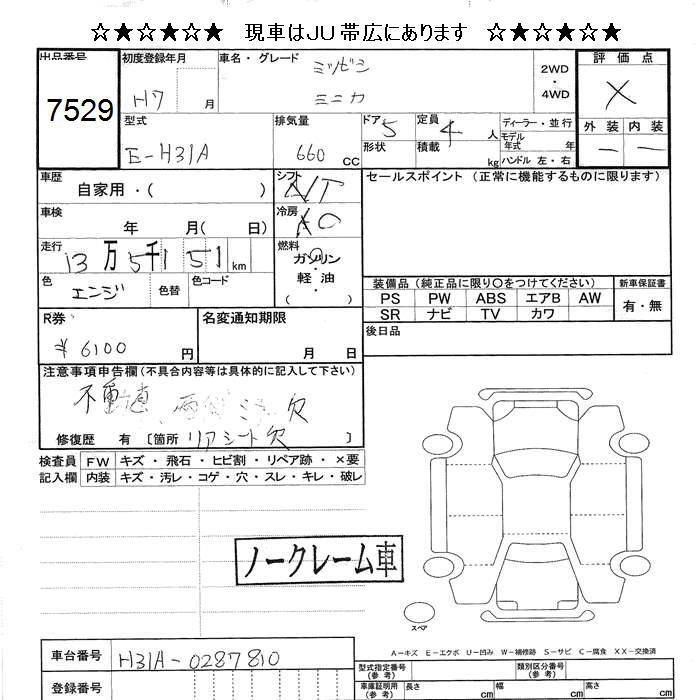 ☆★☆★☆★ 現車はJU帯広にあります ☆★☆★☆★
出品番号 初度登録年月 車名・グレード 評価点
7529 H7 月 ミツビシ ミニカ 2WD ・ 4WD X
型式 排気量 ドア 定員 ディーラー・並行 外装 内装
E-H31A 660 CC 5 4 人 モデル 年式 年 — —
形状 積載 kg ハンドル 左・右
車歴 シフト セールスポイント (正常に機能するものに限ります)
自家用・( ) AT
車検 冷房
年 月( 日) AC
走行 燃料
13万5千151km ガソリン ・ 軽油 ( )
色 色替 色コード 装備品 (純正品に限り○をつけてください) 新車保証書
エンジ PS PW ABS エアB AW 有・無
SR ナビ TV カワ
R券 名変通知期限 後日品
¥6100 円 月 日
注意事項申告欄 (不具合内容等は具体的に記入して下さい)
不動車 ミラー欠
修復歴 有 [箇所 リアシート欠 ]
検査員 FW キズ・飛石・ヒビ割・リペア跡・×要
記入欄 内装 キズ・汚レ・コゲ・穴・スレ・キレ・破レ
ノークレーム車
スペア
A-キズ E-エクボ U-凹み W-補修跡 S-サビ C-腐食 XX-交換済
車台番号 H31A-0287810 型式指定番号 (参考) 類別区分番号 (参考)
登録番号 車庫証明用 (参考) 長さ cm 幅 cm 高さ cm